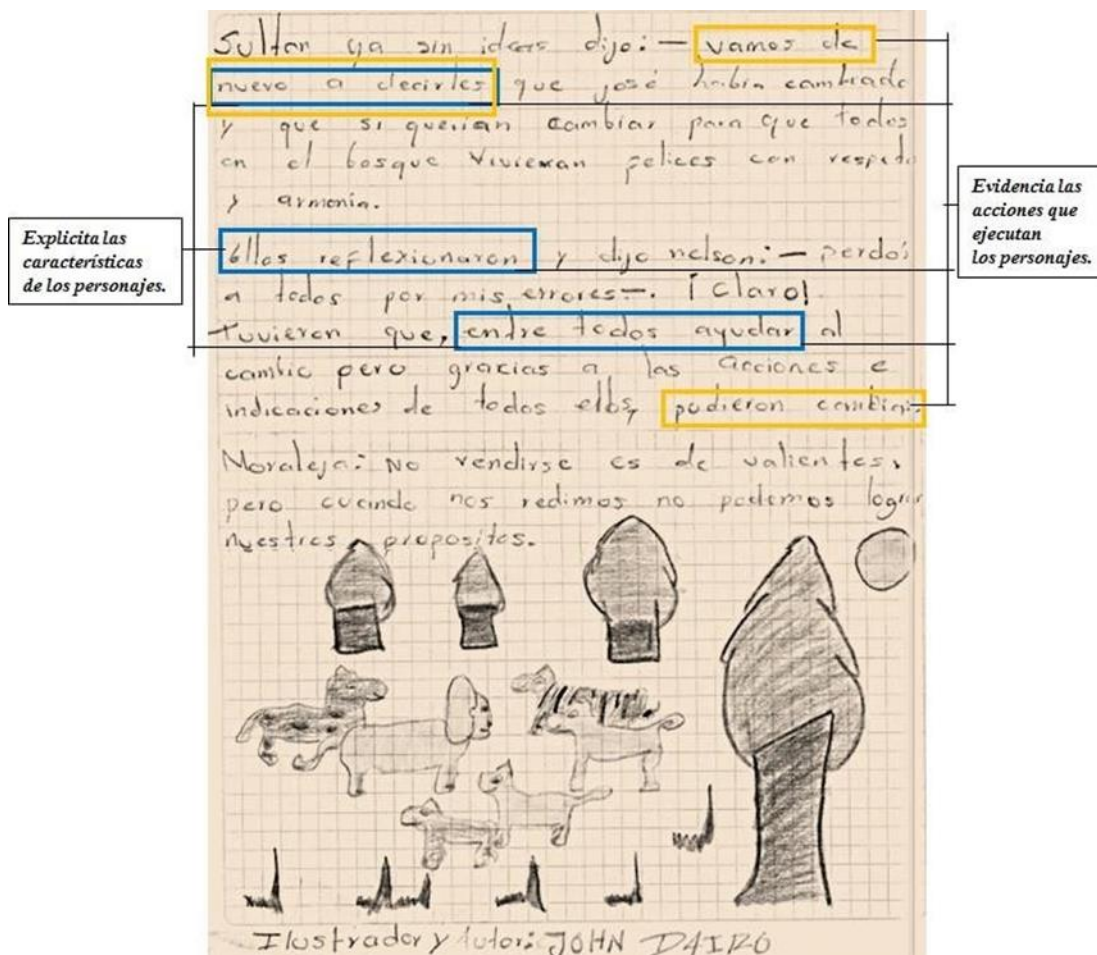 Sultan ya sin ideas dijo: — vamos de
nuevo a decirles que josé había cambiado
y que si querían cambiar para que todos
en el bosque vivieran felices con respeto
y armonía.
Ellos reflexionaron y dijo nelson: — perdón
a todos por mis errores —. ¡Claro!
Tuvieron que, entre todos ayudar al
cambio pero gracias a las acciones e
indicaciones de todos ellos, pudieron cambiar.
Moraleja: No rendirse es de valientes,
pero cuando nos redimos no podemos lograr
nuestros propositos.
Ilustrador y Autor: JOHN DAIRO
Explicita las
características
de los personajes.
Evidencia las
acciones que
ejecutan
los personajes.